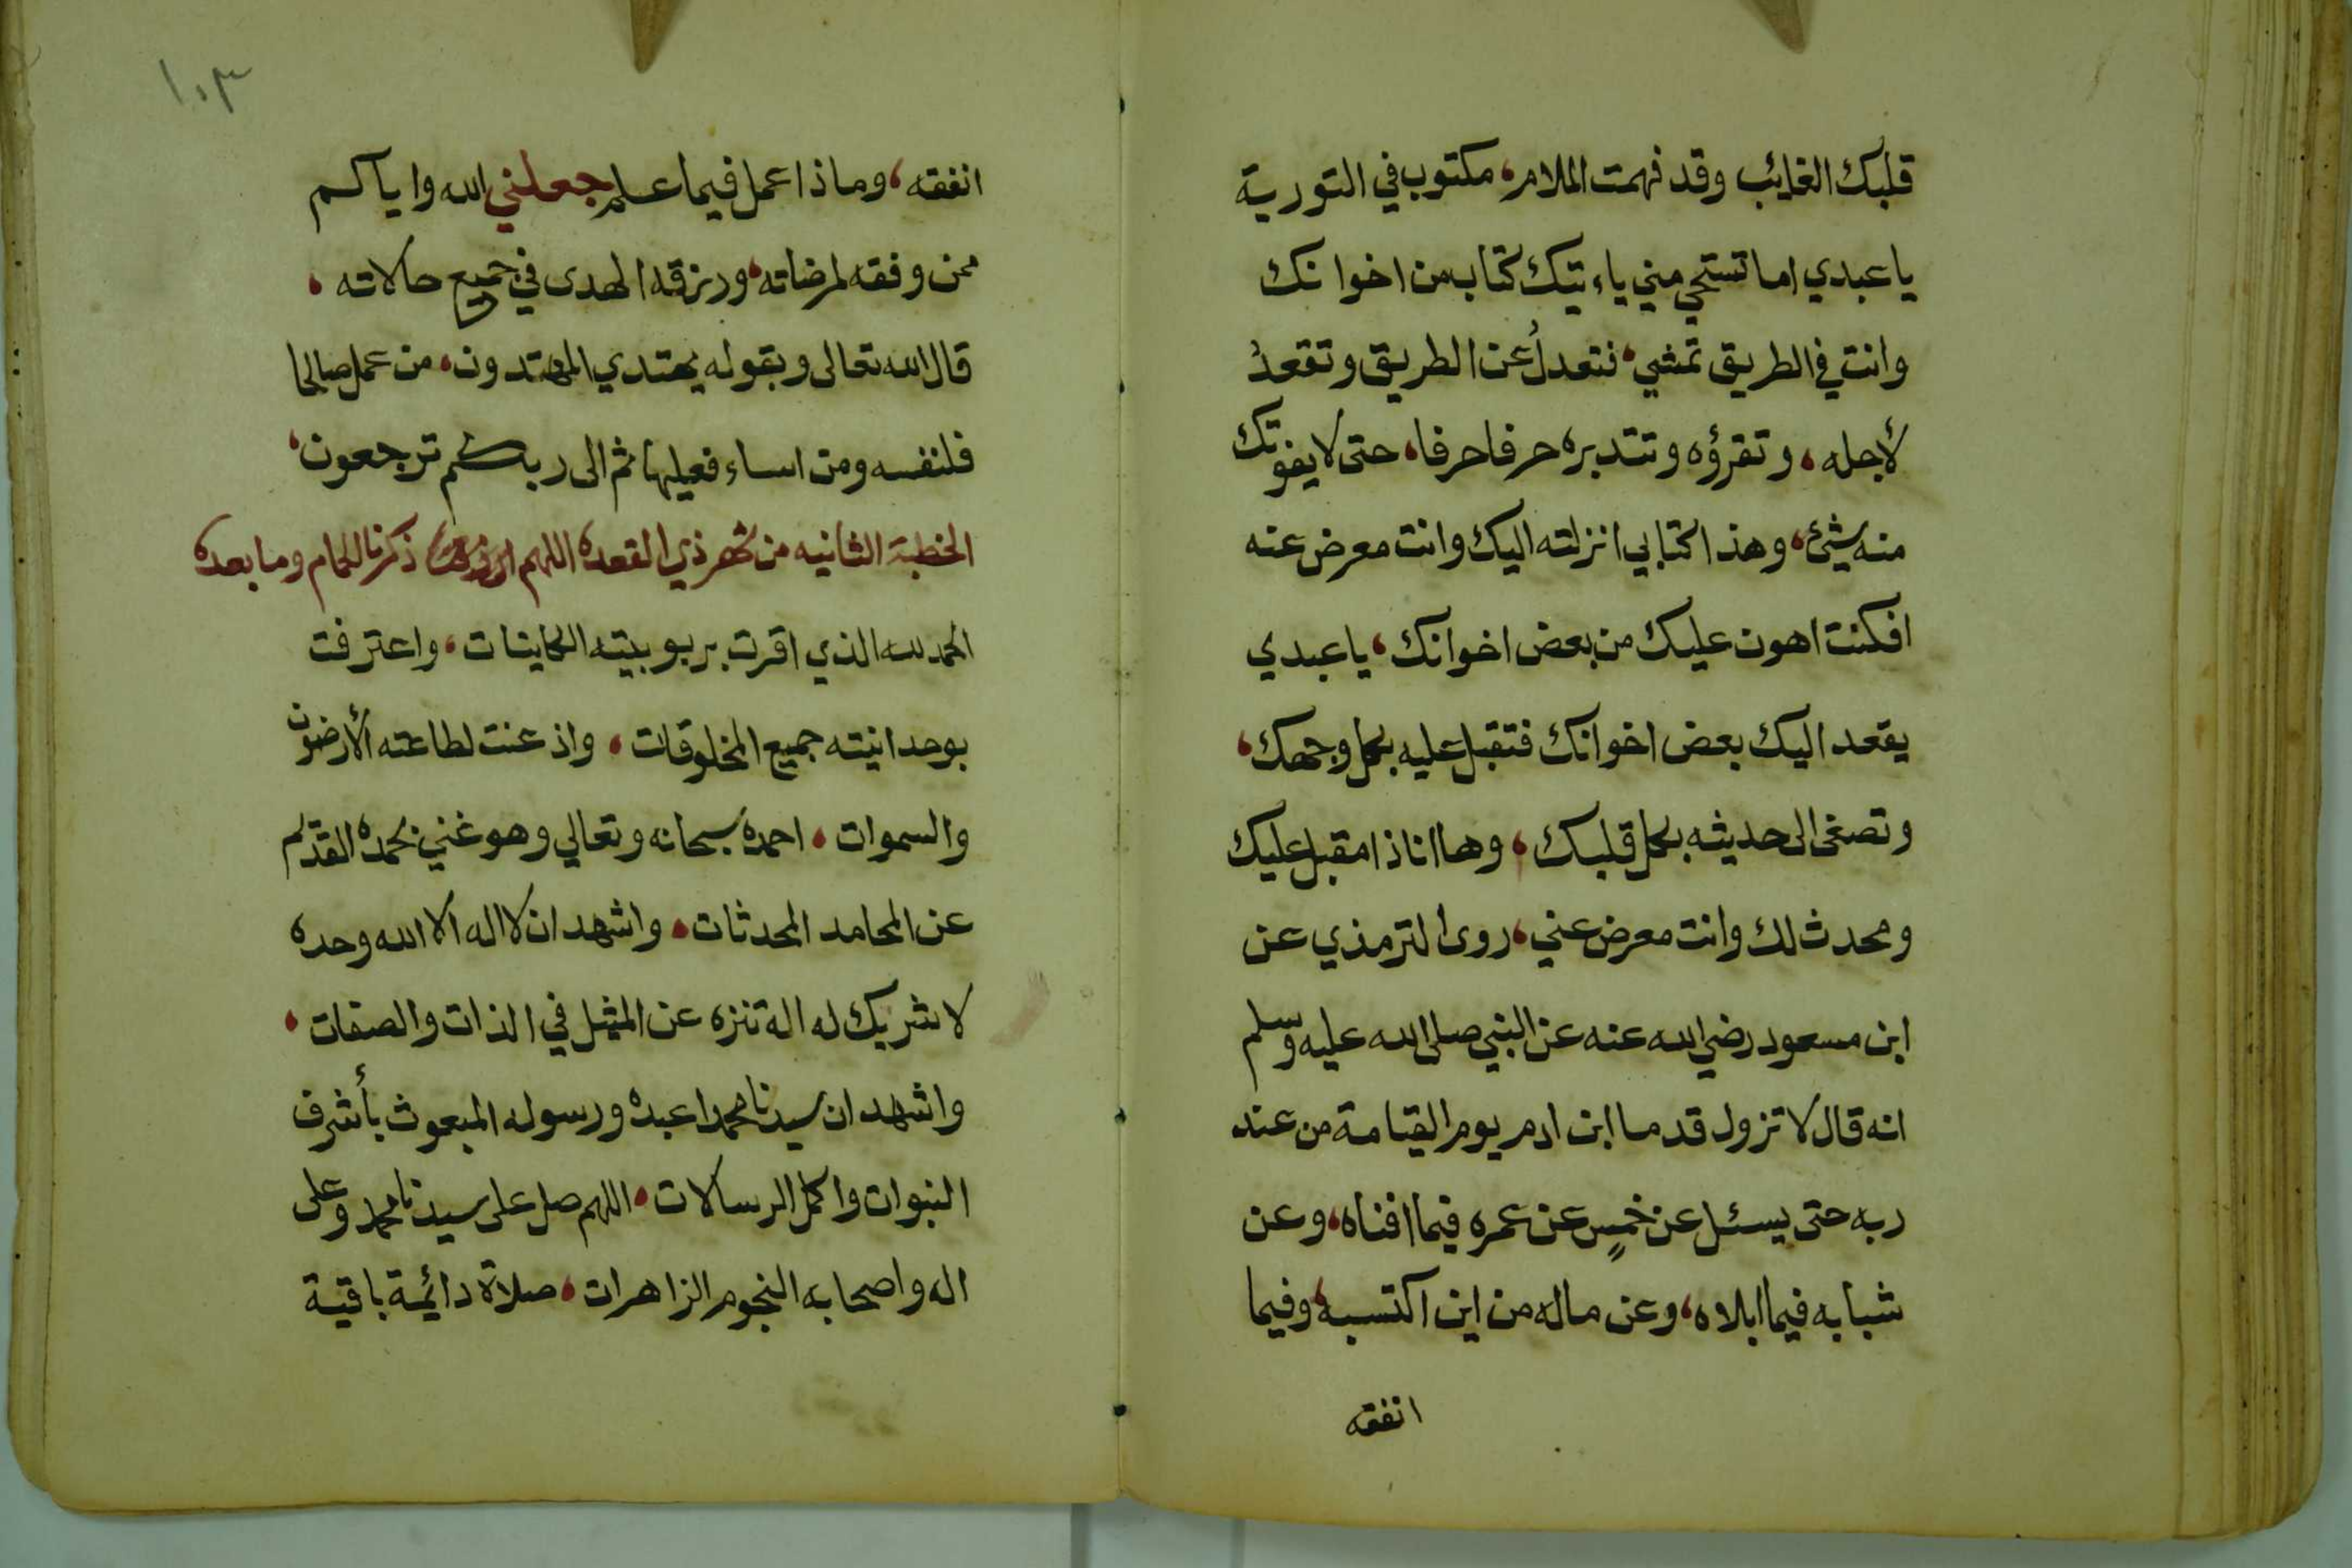 قلبك الغائب وقد فهمت الملام، مكتوب في التورية
يا عبدي اما تستحي مني ياءتيك كتاب من اخوانك
وانت في الطريق تمشي، فتعدلُ عن الطريق وتقعدُ
لأجله، وتقرؤه وتتدبره حرفا حرفا، حتى لا يفوتك
منه شيئ، وهذا كتابي انزلته اليك وانت معرض عنه
افكنت اهون عليك من بعض اخوانك، يا عبدي
يقعد اليك بعض اخوانك فتقبل عليه بكل وجهك،
وتصغى الى حديثه بكل قلبك، وها انا ذا مقبل عليك
ومحدث لك وانت معرض عني، روى الترمذي عن
ابن مسعود رضي الله عنه عن النبي صلى الله عليه وسلم
انه قال لا تزول قدما ابن ادم يوم القيامة من عند
ربه حتى يسئل عن خمسٍ عن عمره فيما افناه، وعن
شبابه فيما ابلاه، وعن ماله من اين اكتسبه، وفيما
انفقه
١٠٣
انفقه، وماذا عمل فيما علم جعلني الله واياكم
ممن وفقه لمرضاته، ورزقه الهدى في جميع حالاته،
قال الله تعالى وبقوله يهتدي المهتدون، من عمل صالحا
فلنفسه ومن اساء فعليها ثم الى ربكم ترجعون،
الخطبة الثانيه من شهر ذي القعده اللهم ذكرنا الحمام وما بعده
الحمد لله الذي اقرت بربوبيته الكاينات، واعترفت
بوحدانيته جميع المخلوقات، واذعنت لطاعته الأرضون
والسموات، احمده سبحانه وتعالي وهو غني بحمده القديم
عن المحامد المحدثات، واشهد ان لا اله الا الله وحده
لا شريك له اله تنزه عن المثيل في الذات والصفات،
واشهد ان سيدنا محمدا عبده ورسوله المبعوث بأشرف
النبوات واكمل الرسالات، اللهم صل على سيدنا محمد وعلى
اله واصحابه النجوم الزاهرات، صلاة دائمة باقية